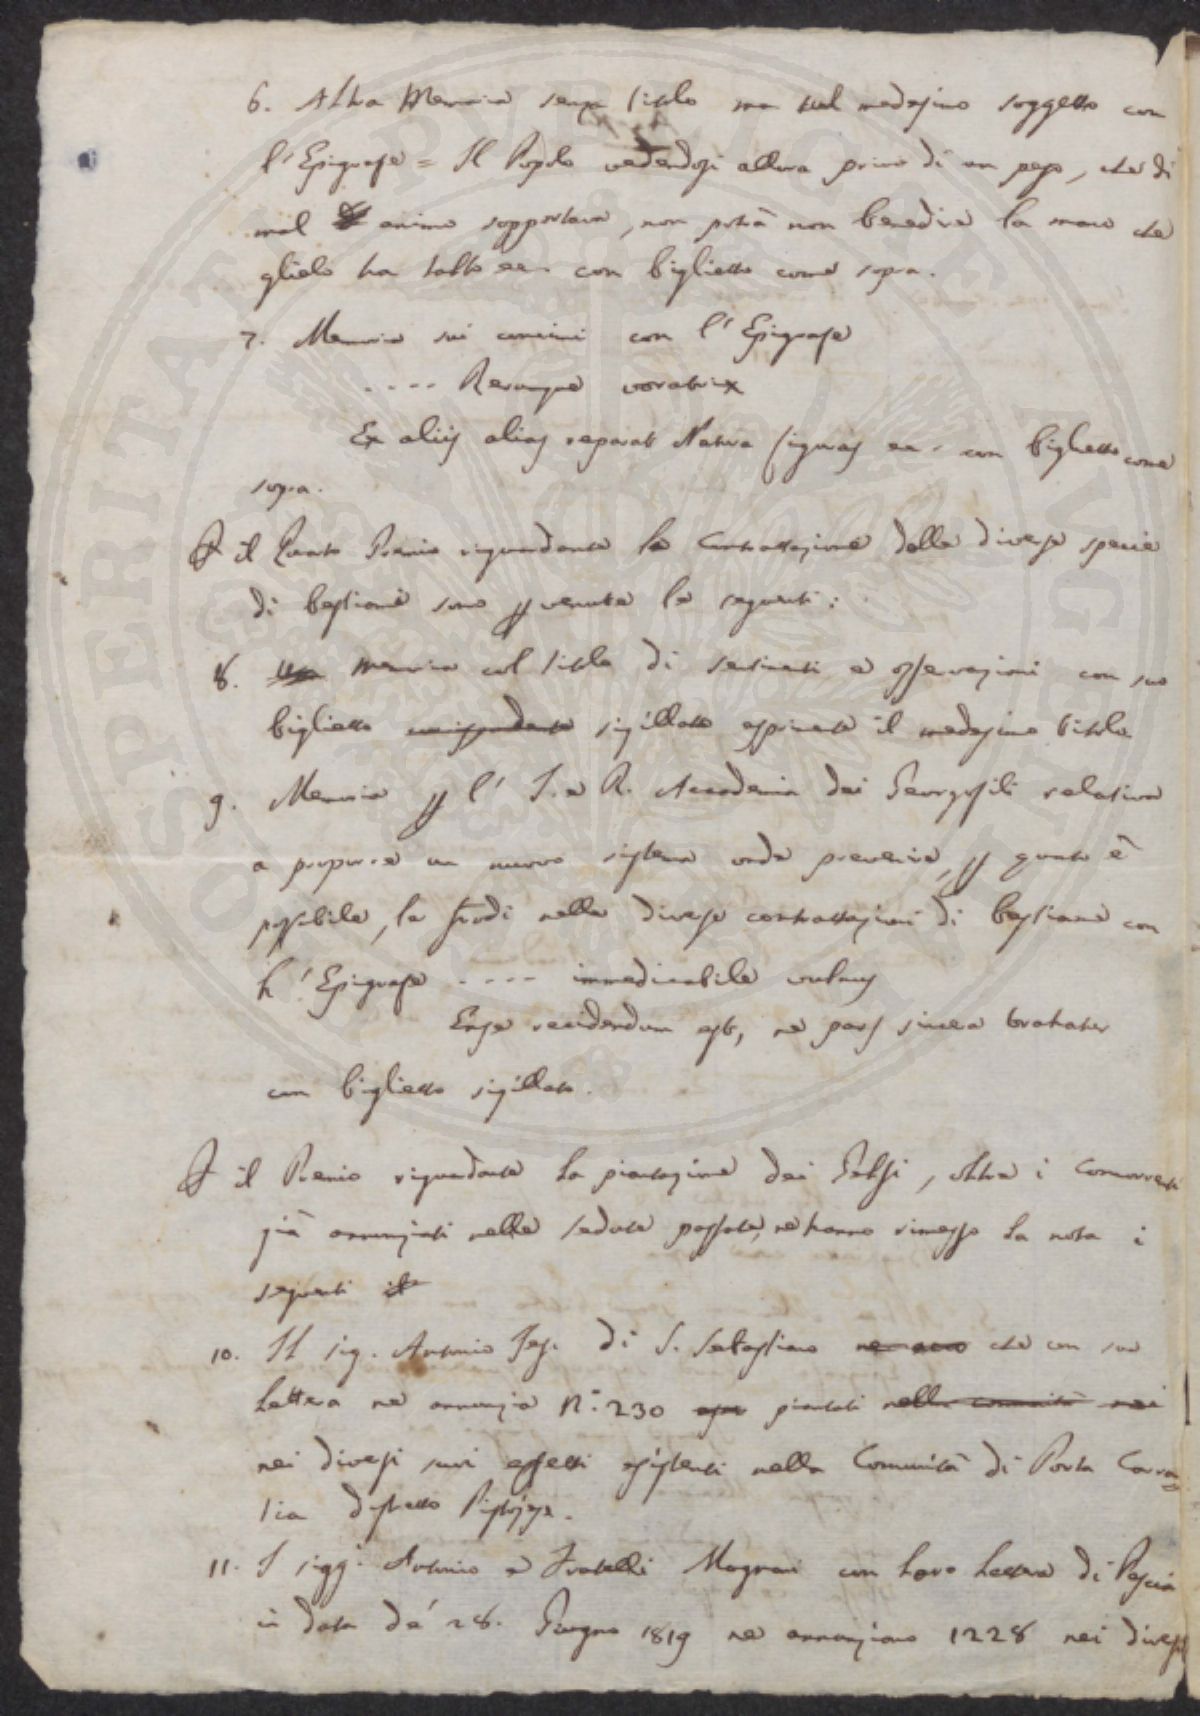 6. Altra Memoria senza titolo ma sul medesimo soggetto con
l'Epigrafe = Il Popolo vedendosi allora privo di un peso, che di
mal animo sopportava, non potrà non benedire la mano che
glielo ha tolto ec. con biglietto come sopra.
7. Memoria sui concimi con l'Epigrafe
.... Rerumque novatrix
Ex aliis alias reparat Natura figuras ec. con biglietto come
sopra.
P il Quarto Premio riguardante le Contrattazione delle diverse specie
di bestiame sono pvenute le seguenti:
8. Memoria col titolo di sentimenti e osservazioni con suo
biglietto corrispondente sigillato esprimente il medesimo titolo
9. Memoria p l' I. e R. Accademia dei Georgofili relativa
a proporre un nuovo sistema onde prevenire, p quanto è
possibile, le frodi nelle diverse contrattazioni di bestiame con
l'Epigrafe .... immedicabile vulnus
Ense recidendum est, ne pars sincera trahatur
con biglietto sigillato.
P il Premio riguardante la piantazione dei Gelsi, oltre i Concorrenti
già annunziati nella seduta passata, ne hanno rimesso la nota i
seguenti
10. Il sig. Antonio Gesi. di S. Sebastiano che con sua
Lettera ne annunzia N.° 230 piantati nella comunità nei
nei diversi suoi effetti esistenti nella Comunità di Porta Carra=
tica distretto Pistojese.
11. I sigg. Antonio e Fratelli Magnani con Loro Lettera di Pescia
in data de' 28. Giugno 1819 ne annunziano 1228 nei diversi